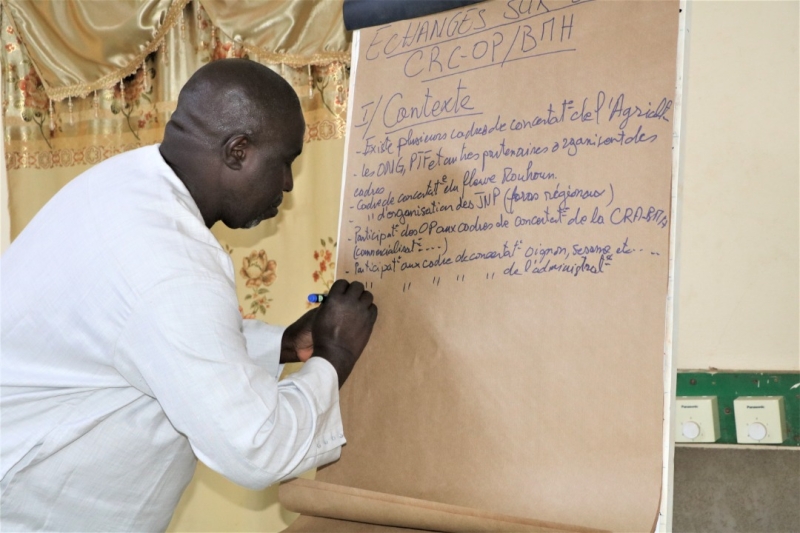 ECHANGES SUR
CRC-OP/BMH
I/ Contexte
- Existe plusieurs cadres de concertat° de l'Agricult
- Les ONG, PTF et autres partenaires organisent des
cadres
- Cadre de concertat° du fleuve Rouhoun.
- " d'organisation des JNP (foras régionaux)
- Participat° des OP aux cadres de concertat° de la CRA-BMH
(commercialisat° ...)
- Participat° aux cadre de concertat° oignon, sesame etc ....
- " " " " " de l'administrat°
Panasonic
Panasonic